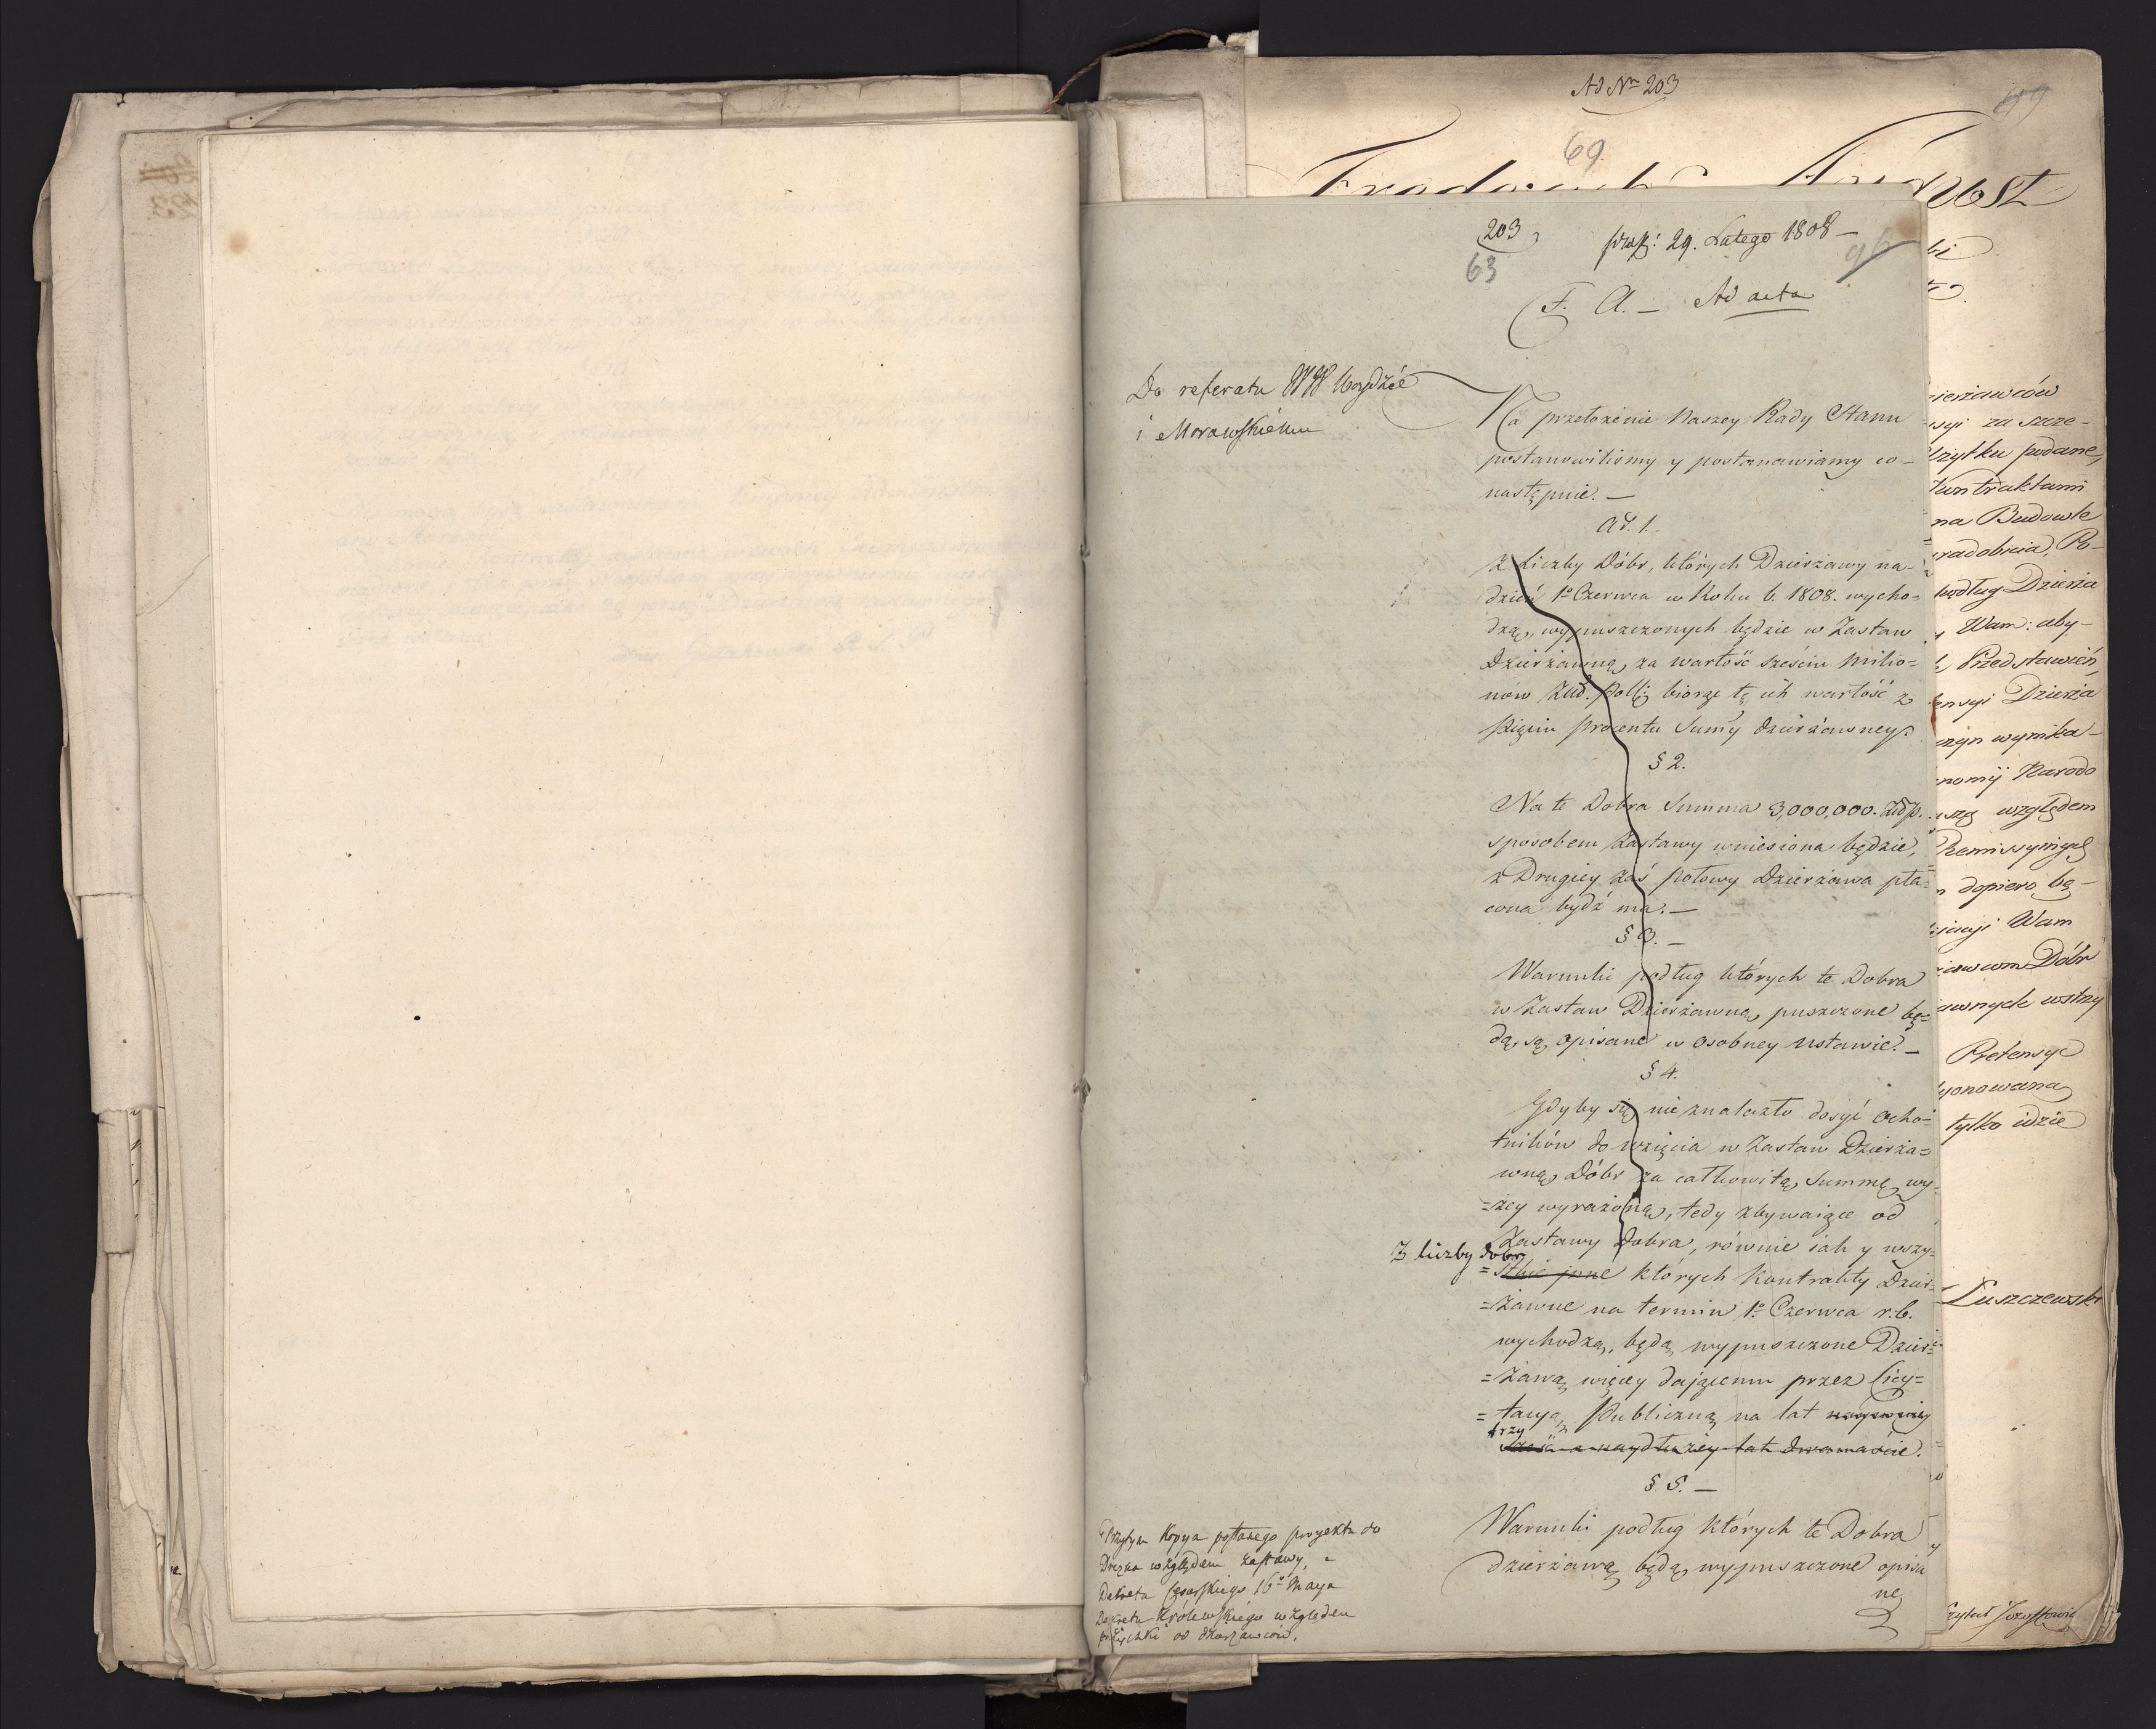 Ad Nr 203
99
69.
Fryderyk August
203
63
praes: 29. Lutego 1808 —
96
F. A. — Ad acta
Do referatu WW
i Morawskiemu
Na przełożenie Naszey Rady Stanu
postanowiliśmy y postanawiamy co-
następnie. —
Ad. 1.
Z Liczby Dóbr, których Dzierżawy na-
dzień 1o Czerwca w Roku b. 1808. wycho=
dzą, wypuszczonych będzie w Zastaw
Dzierżawną, za wartość sześciu milio=
nów Złł. Poll: biorąc tę ich wartość z
pięciu procentu Summy dzierżawney.
§ 2.
Na te Dobra Summa 3,000,000. Złłp.
sposobem Zastawy wniesiona będzie,
z Drugiey zaś połowy Dzierżawa pła=
cona bydź ma. —
§ 3. —
Warunki podług których te Dobra
w Zastaw Dzierżawną puszczone bę=
dą, są opisane w osobney Ustawie. —
§ 4.
Gdyby się nie znalazło dosyć Ocho=
tników do wzięcia w Zastaw Dzierża=
wną Dóbr za całkowitą Summę wy=
=żey wyrażoną, tedy zbywaiące od
Zastawy Dobra, równie iak y wszy=
Z liczby dobr
=stkie jnne których Kontrakty Dzier=
=żawne na termin 1o Czerwca r. b.
wychodzą, będą wypuszczone Dzier=
=żawą więcey dającemu przez licy=
=tacyą Publiczną na lat naymniey
trzy
sześć a naydłużey lat dwanaście.
§ 5. —
Warunki podług których te Dobra
dzierżawą będą wypuszczone opisa
ne
Przytym Kopya posłanego proyektu do
Drezna względem zastawy,
Dekretu Cesarskiego 16o Maya
Dekretu Królewskiego względem
pożyczki od dzierżawców.
bi
ierżawców
nsyi za szcze-
Użytku podane,
Kontraktami
na Budowle
radobicia, Po-
według Dzierża
Wam: aby-
Przedstawień,
ensyi Dzierża
wynika-
nomij Narodo
wszą względem
Remissyinych
dopiero bę-
Wam
awcom Dóbr
awnych wstrzy
Pretensye
yonowana
tylko idzie
Łuszczewski